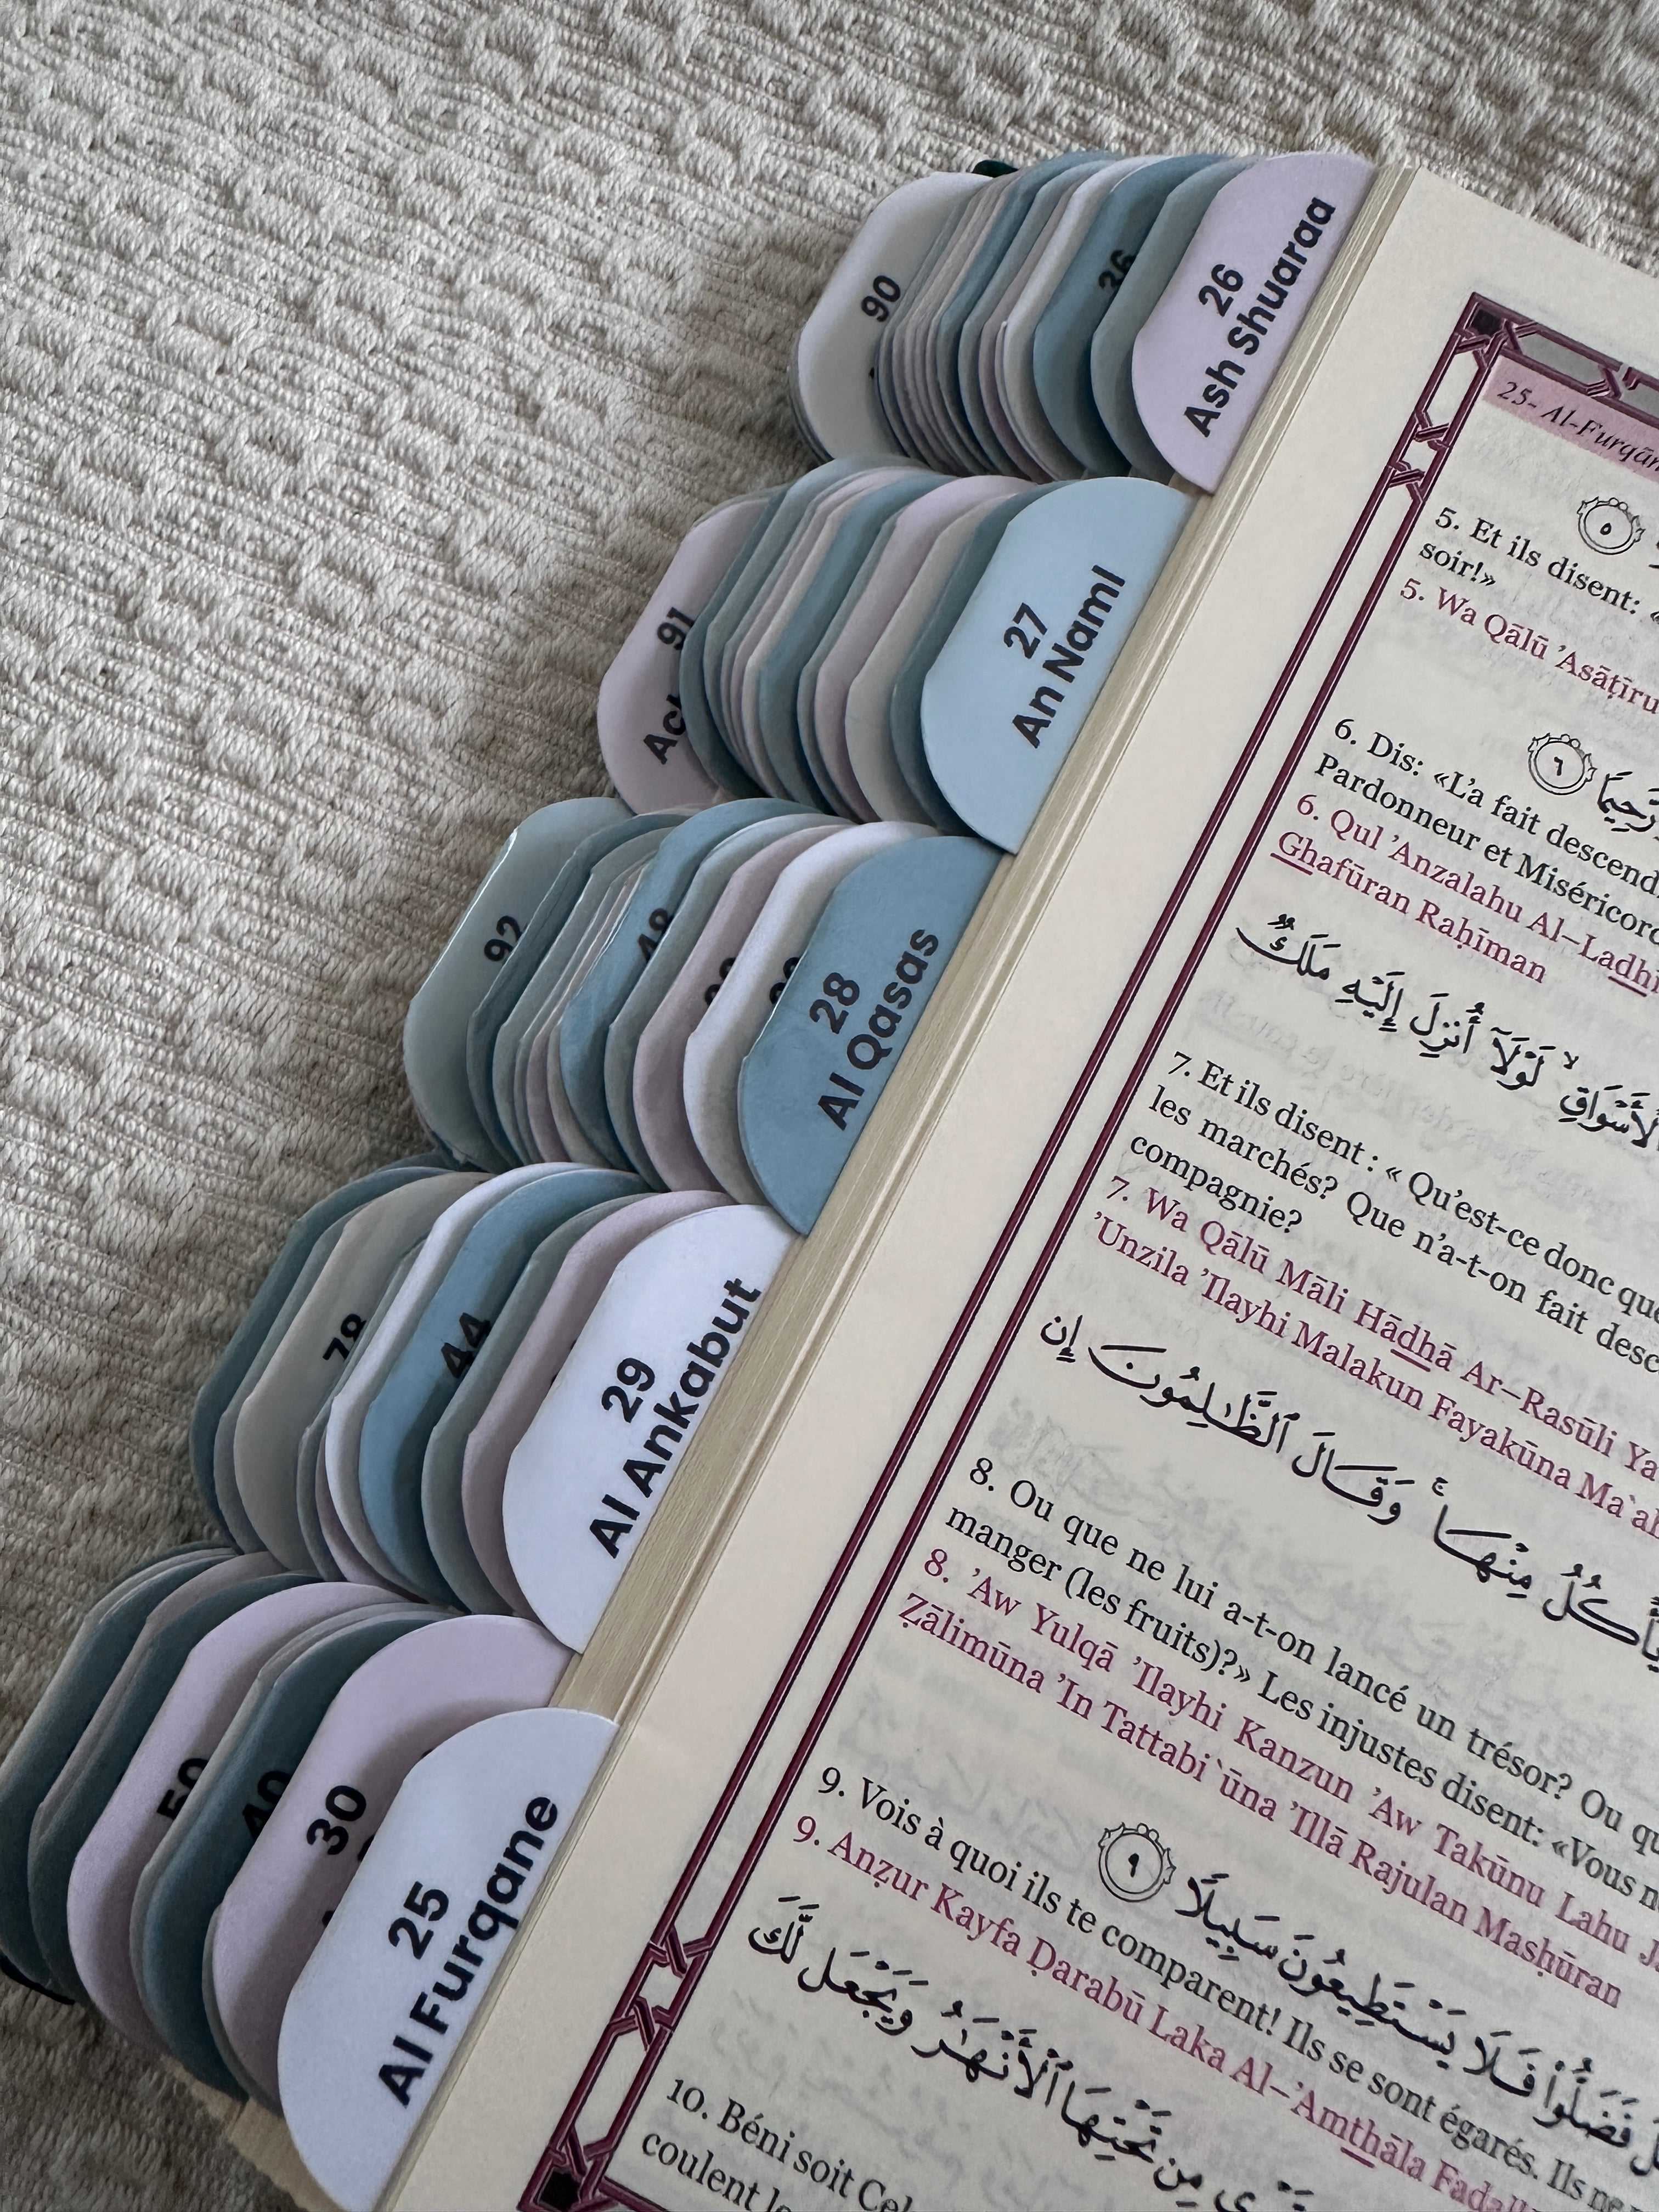 90
36
26
Ash Shuaraa
91
27
An Naml
92
48
28
Al Qasas
78
44
29
Al Ankabut
50
40
30
25
Al Furqane
25- Al-Furqān
٥
5. Et ils disent: «
soir!»
5. Wa Qālū 'Asāṭīru
رَّحِيمًا ٦
6. Dis: «L'a fait descend
Pardonneur et Miséricord
6. Qul 'Anzalahu Al–Ladhi
Ghafūran Raḥīman
ٱلْأَسْوَاقِ ۙ لَوْلَآ أُنزِلَ إِلَيْهِ مَلَكٌ
7. Et ils disent : « Qu'est-ce donc que
les marchés? Que n'a-t-on fait desc
compagnie?
7. Wa Qālū Māli Hādhā Ar–Rasūli Ya
'Unzila 'Ilayhi Malakun Fayakūna Ma`ah
يَأْكُلُ مِنْهَا ۚ وَقَالَ ٱلظَّـٰلِمُونَ إِن
8. Ou que ne lui a-t-on lancé un trésor? Ou qu
manger (les fruits)?» Les injustes disent: «Vous n
8. 'Aw Yulqá 'Ilayhi Kanzun 'Aw Takūnu Lahu J
Ẓālimūna 'In Tattabi`ūna 'Illā Rajulan Masḥūran
فَضَلُّوا۟ فَلَا يَسْتَطِيعُونَ سَبِيلًا ٩
9. Vois à quoi ils te comparent! Ils se sont égarés. Ils ne
9. Anẓur Kayfa Ḍarabū Laka Al–'Amthāla Faḍal
مِن تَحْتِهَا ٱلْأَنْهَـٰرُ وَيَجْعَل لَّكَ
10. Béni soit Cel
coulent le